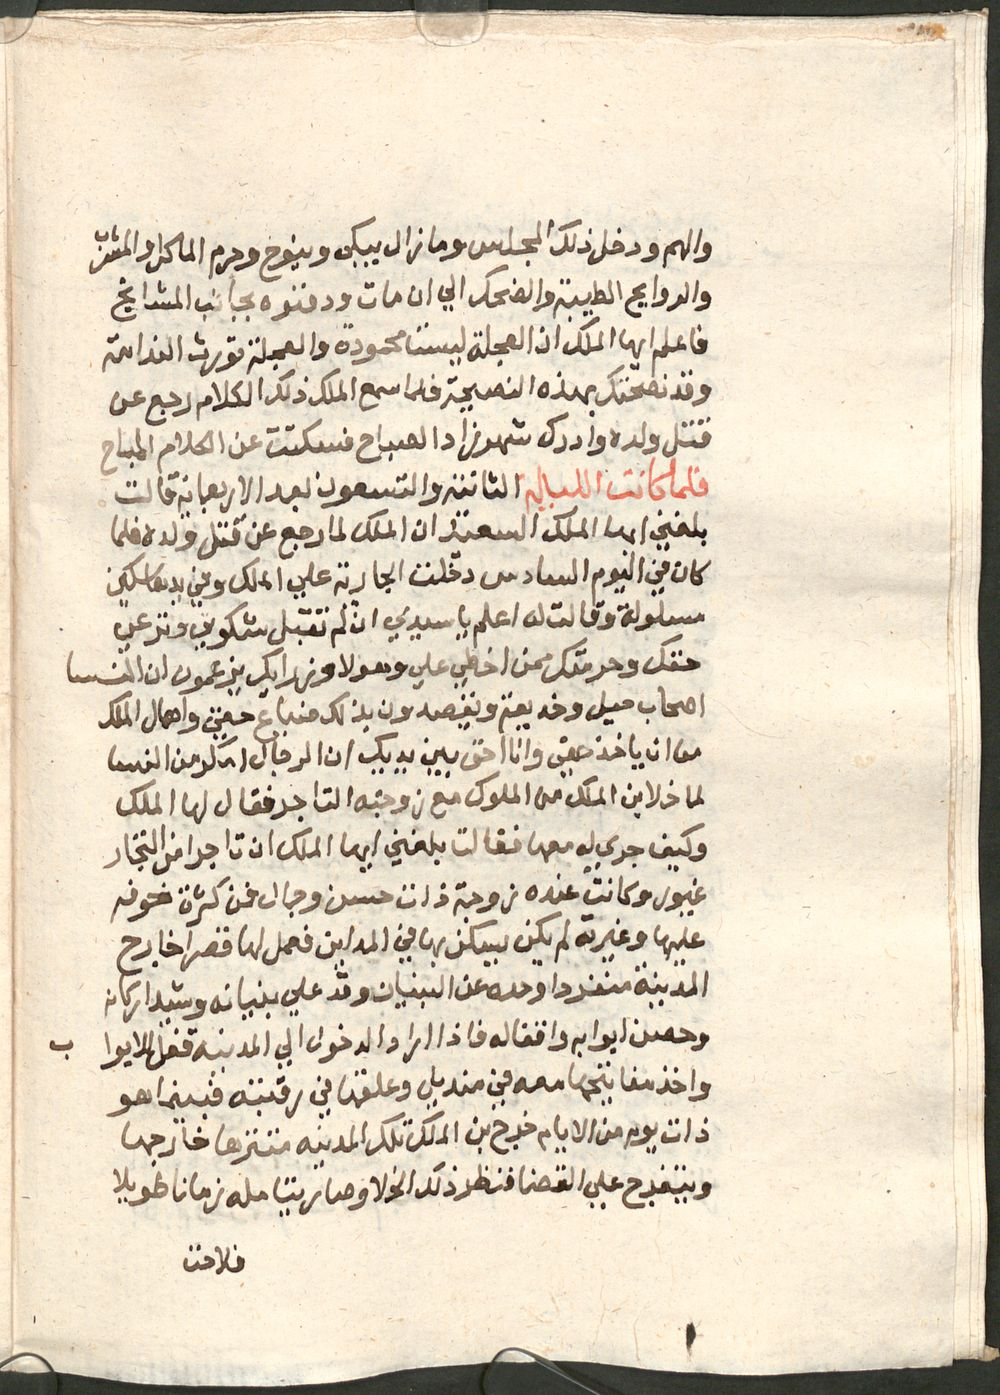 والهم ودخل ذلك المجلس وما زال يبكي وينوح وحرم الماكل والمشرب
والروايح الطيبة والضحك الي ان مات ودفنوه بجانب المشايخ
فاعلم ايها الملك ان العجلة ليست محمودة والعجلة تورث الندامة
وقد نصحتك بهذه النصيحة فلما سمع الملك ذلك الكلام رجع عن
قتل ولده وادرك شهرزاد الصباح فسكتت عن الكلام المباح
فلما كانت الليلة الثانية والتسعون بعد الاربعماية قالت
بلغني ايها الملك السعيد ان الملك لما رجع عن قتل ولده فلما
كان في اليوم السادس دخلت الجارية علي الملك وفي يدها سكين
مسلولة وقالت له اعلم يا سيدي ان لم تقبل شكوتي وترعي
حقك وحرمتك ممن اخطي علي وهولا وزرايك يزعمون ان النسا
اصحاب حيل وخديعة ويقصدون بذلك ضياع حقي واهمال الملك
من ان ياخذ حقي وانا احق بين يديك ان الرجال اكبد من النسا
لما خلا ابن الملك من الملوك مع زوجته التاجر فقال لها الملك
وكيف جري له معها فقالت بلغني ايها الملك ان تاجرا من التجار
غيور وكانت عنده زوجة ذات حسن وجمال فمن كثرة خوفه
عليها وغيرته لم يكن يسكن بها في المداين فعمل لها قصرا خارج
المدينة منفردا وحده عن البنيان وقد علي بنيانه وشيد اركانه
وحصن ابوابه واقفاله فاذا اراد الدخول الي المدينه قفل الابوا ب
واخذ مفاتيحها معه في منديل وعلقها في رقبته فبينما هو
ذات يوم من الايام خرج بن الملك تلك المدينه متنزها خارجها
ويتفرج علي الفضا فنظر ذلك الخلا وصار يتامله زمانا طويلا
فلاحت